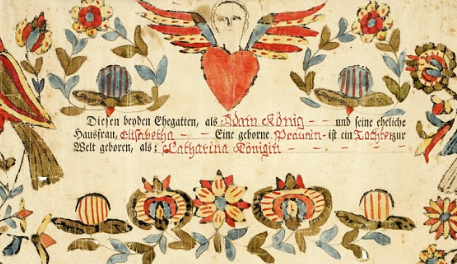 Diesen beyden Ehegatten, als Adam König - - und seine eheliche
Hausfrau, Elisabetha - - Eine geborne Braunin - ist ein Tochter zur
Welt geboren, als: Catharina Königin - - - - - -